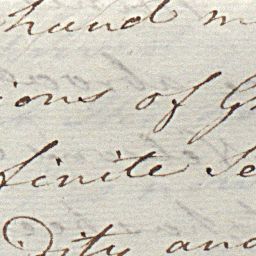 hand m
ions of G
finite Se
Deity and